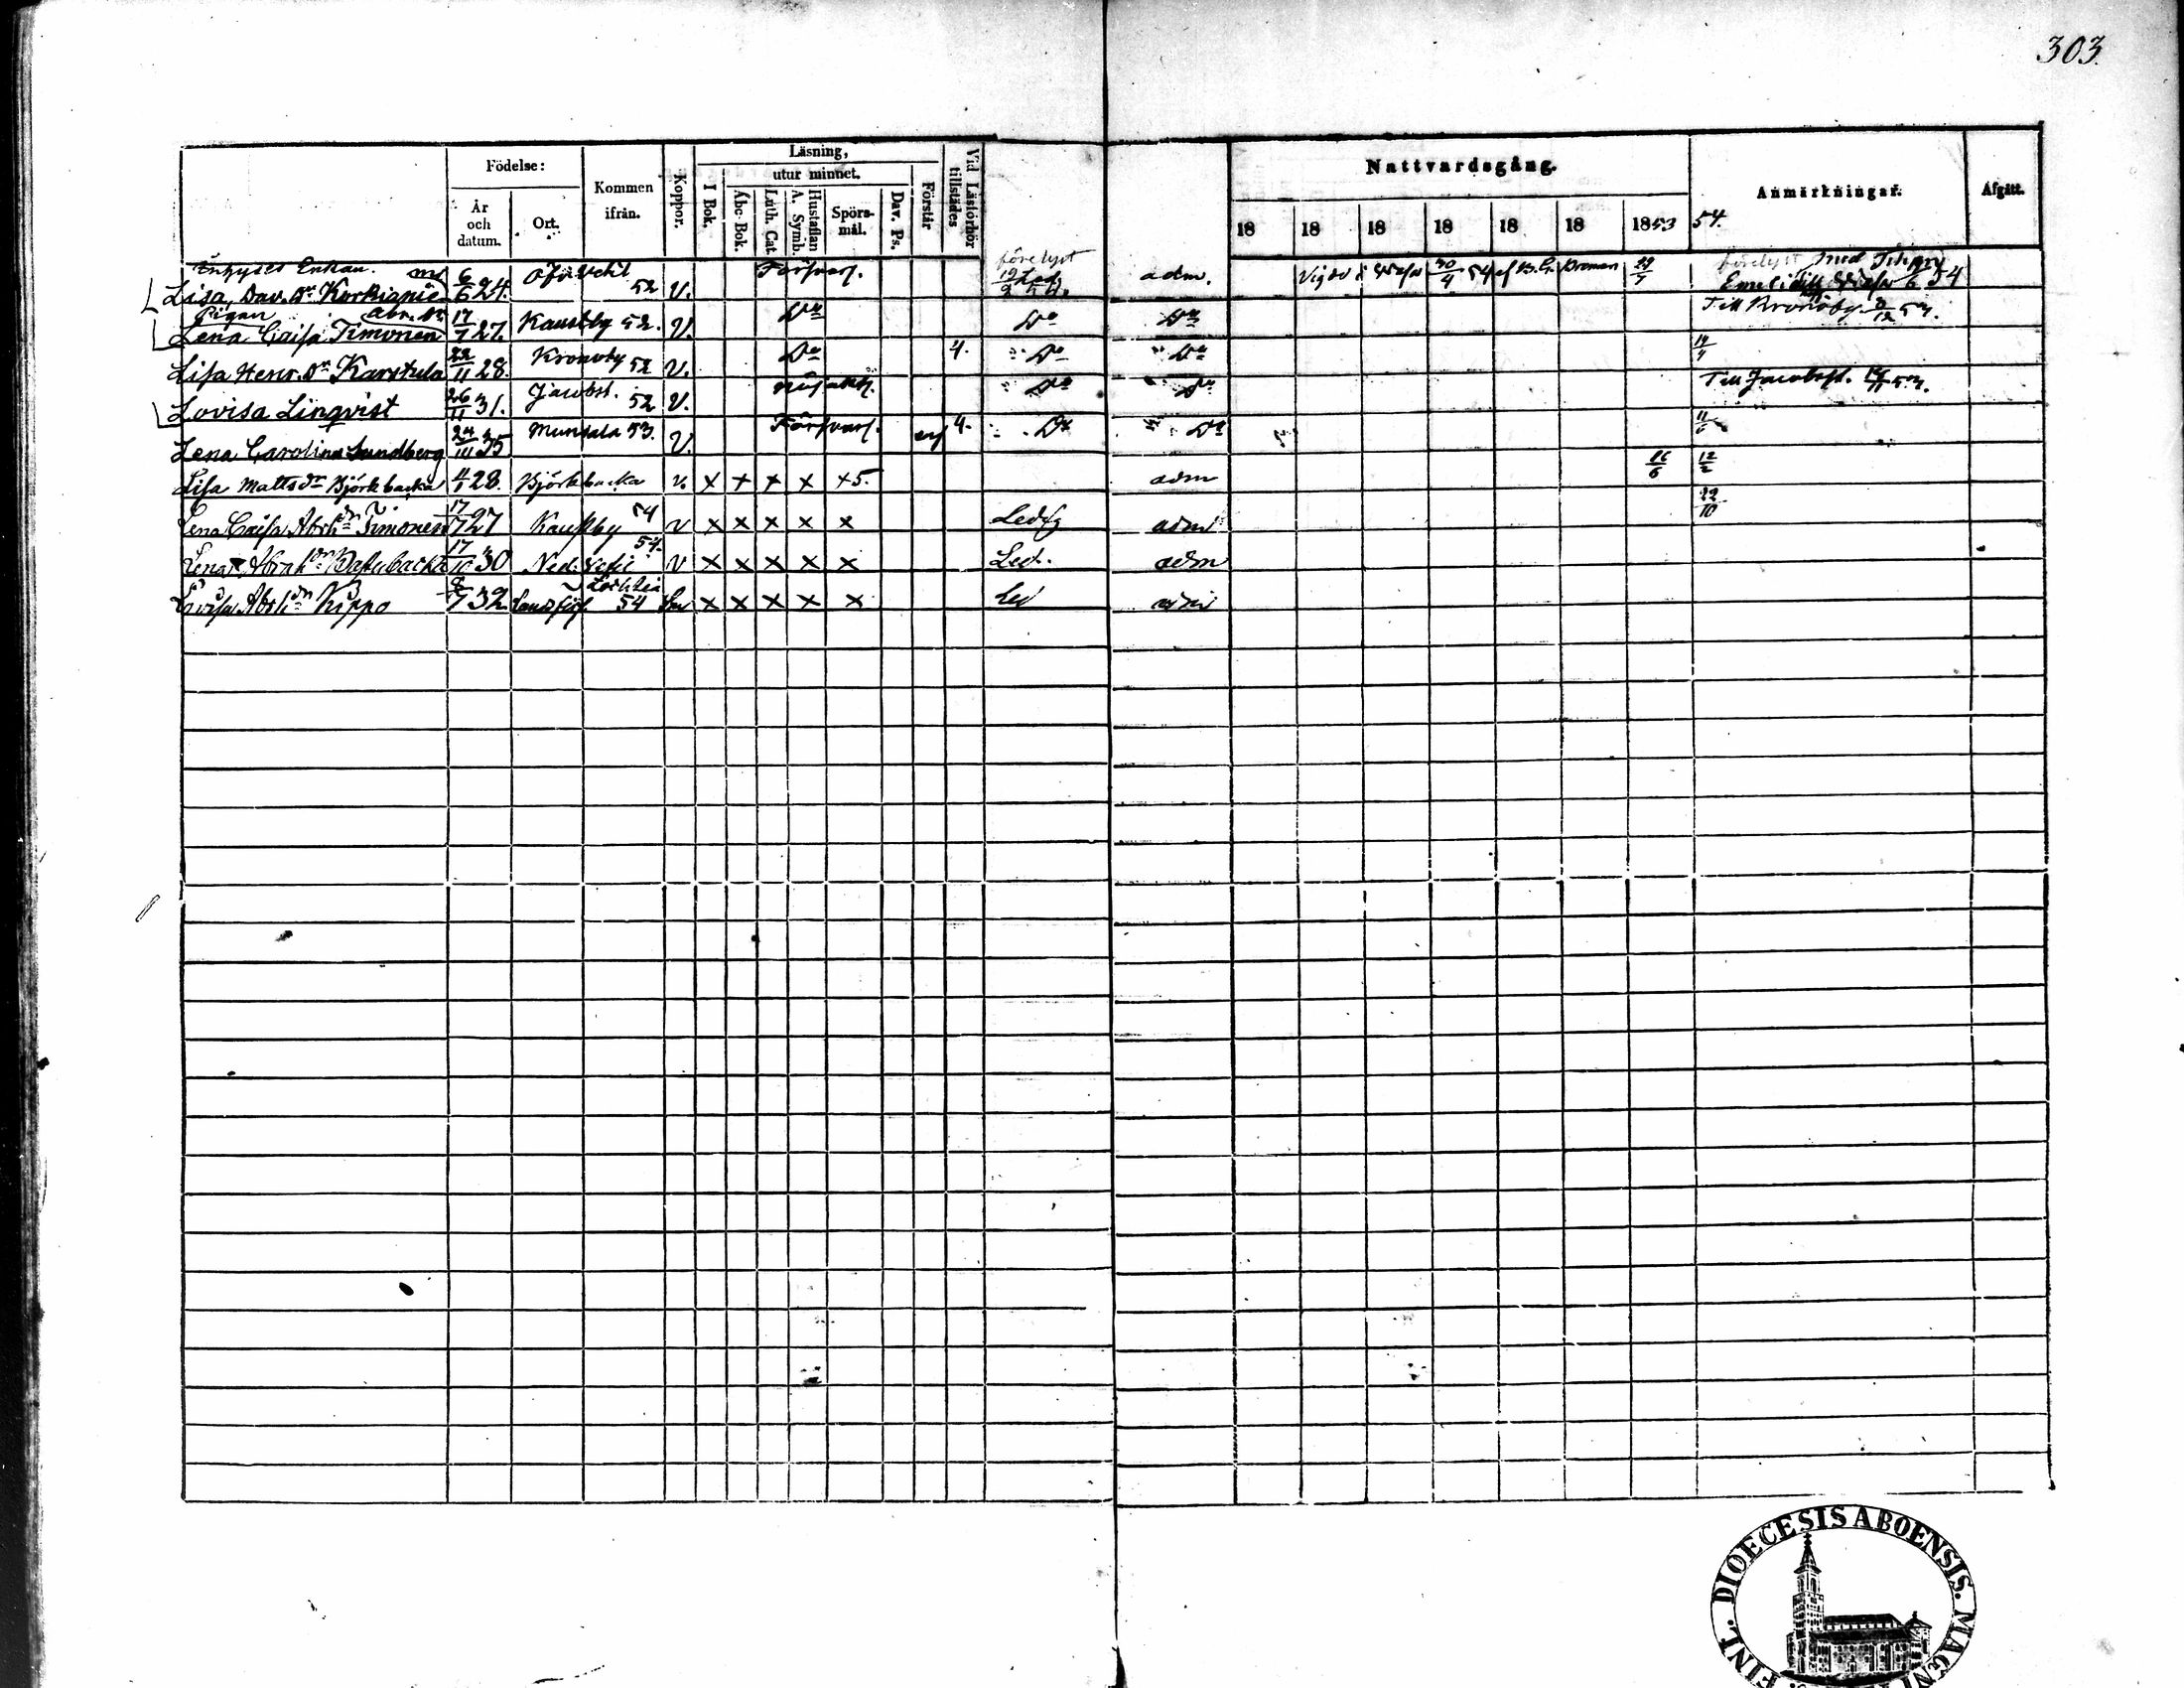 303.
Födelse:
Läsning,
Vid Läsförhör tillstädes
Nattvardsgång.
Anmärkningar.
Afgått.
År och datum.
Ort.
Kommen ifrån.
Koppor.
I Bok.
utur minnet.
Abc-Bok.
Luth. Cat.
Hustaflan A. Symb.
Spörs-mål.
Dav. Ps.
Förstår
18 18 18 18 18 18 1853 54.
Inhyses Enkan.
Lisa, Dav. Dr 6/6 24. Öfvervetil 52 V. Försvarl. 12/2 54. adm. 30/4 54 af Broman 29/7 54
Pigan Abr. Dr
Lena Caisa Timonen 17/7 27. Kaustby 52. V. Do Do Do Till Kronoby 53.
Lisa Henr. Dr Karstula 22/11 28. Kronoby 52 V. Do 4. Do Do
Lovisa Linqvist 26/11 31. Jacobst. 52 V. Do Do Till Jacobst. 53.
Lena Carolina Sundberg 24/III 35 Munsala 53. V. Försvarl. 4. Do Do
Lisa Mattsdr Björkbacka 4/1 28. Björkbacka V. × + × × +5. adm 16/6 12/2
Lena Caisa Abrh dr Timonen 17/7 27 Kaustby 54 V × × × × × Ledig adm 22/10
Lena Abrah dr 17/10 30 Ned: Vetil 54. V × × × × × Led. adm
Lovisa Abrh dr Kippo 8/7 32 Lochteå 54 × × × × × Led adm
FINL. DIOECESIS ABOENSIS. MAGNI